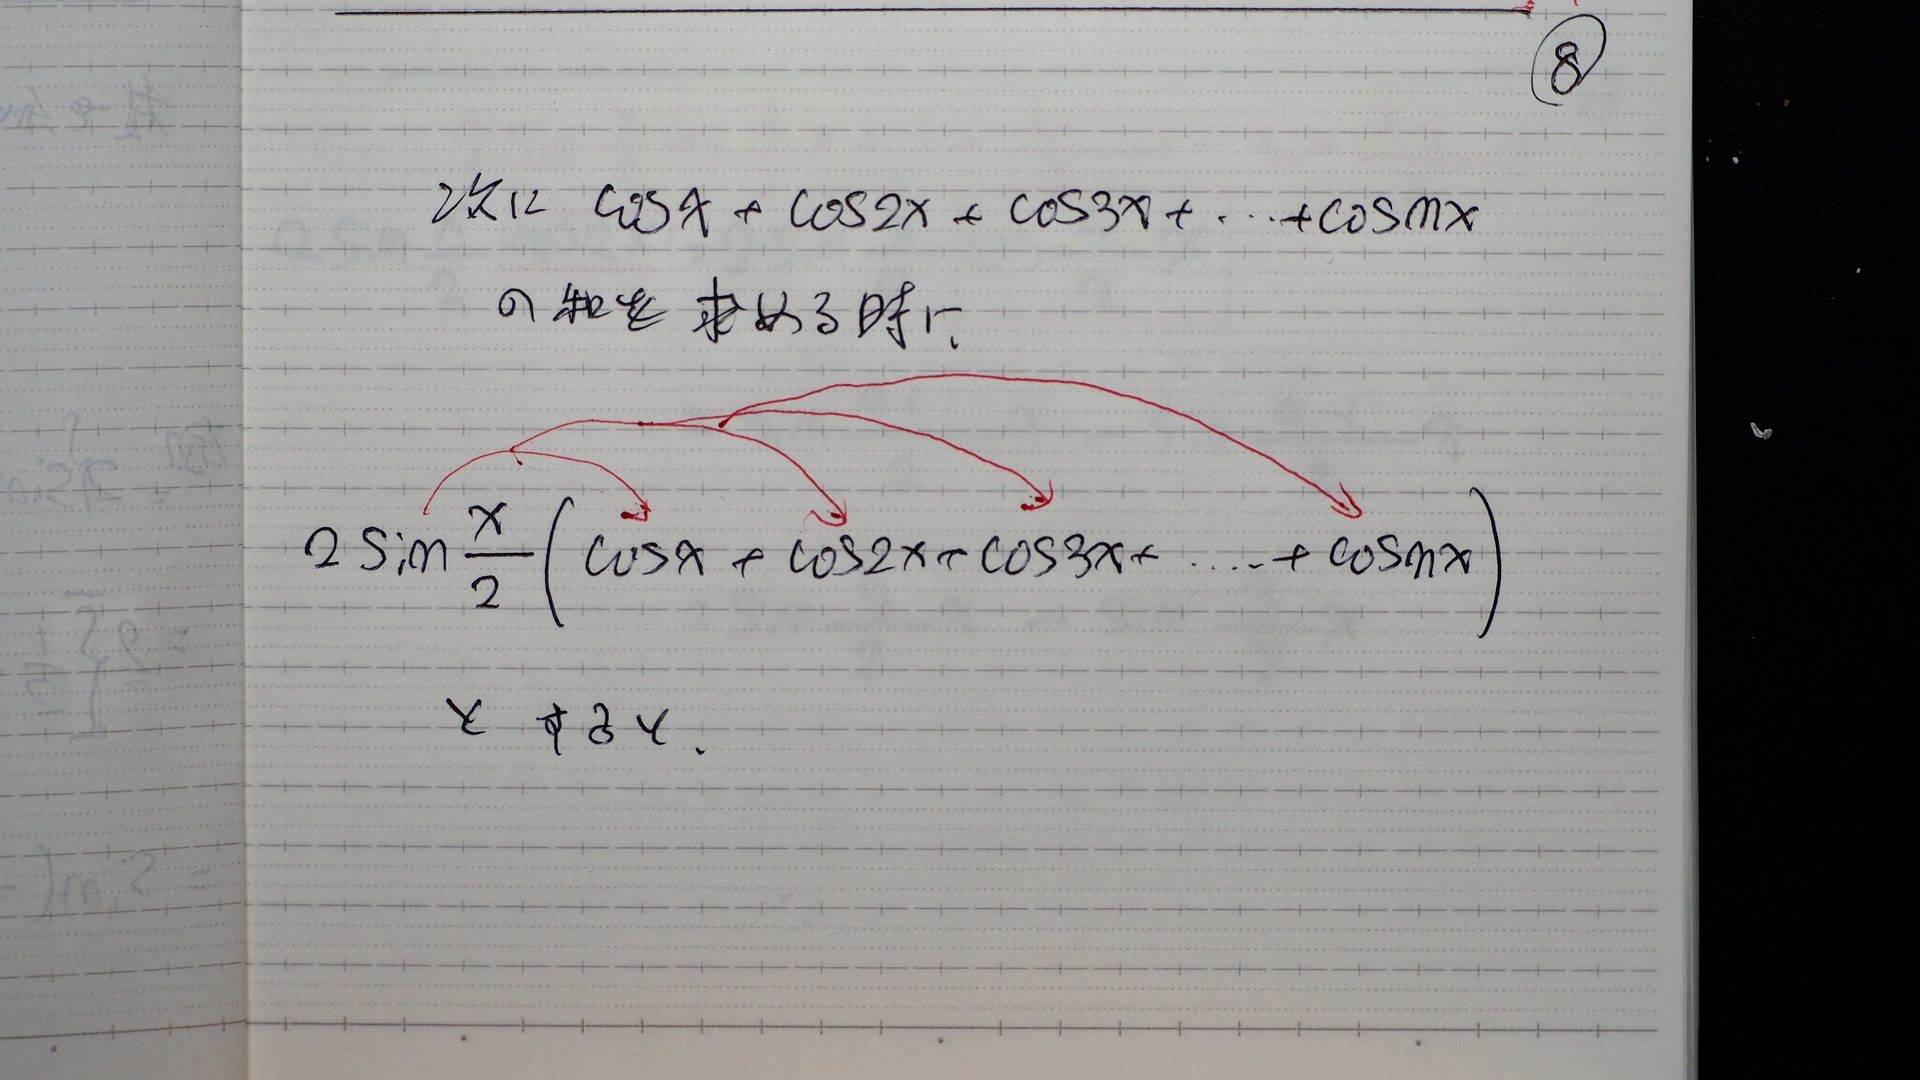 8
次に cosx + cos2x + cos3x + ・・・ + cosnx
の和を求める時に、
2 sin x/2 ( cosx + cos2x + cos3x + ・・・・ + cosnx )
とすると.